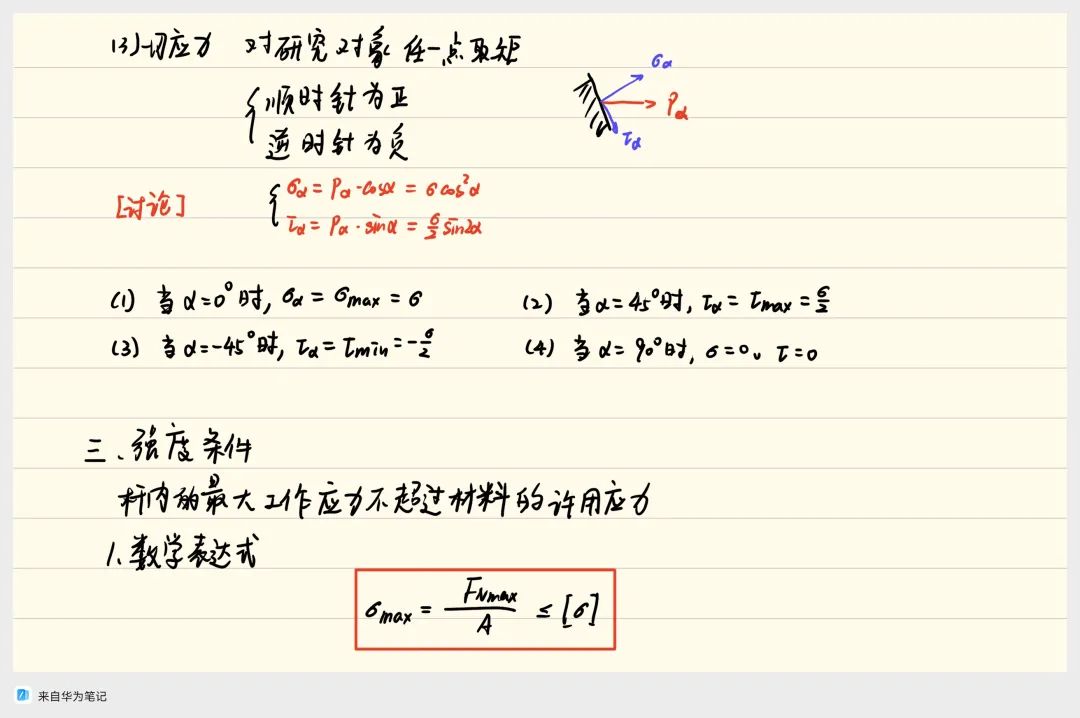 (3)切应力 对研究对象任一点取矩
顺时针为正
逆时针为负
σα
Pα
τα
[讨论]
σα = Pα·cosα = σcos²α
τα = Pα·sinα = σ/2 sin2α
(1) 当α=0°时, σα = σmax = σ
(2) 当α=45°时, τα = τmax = σ/2
(3) 当α=-45°时, τα = τmin = -σ/2
(4) 当α=90°时, σ=0、τ=0
三、强度条件
杆内的最大工作应力不超过材料的许用应力
1、数学表达式
σmax = FNmax/A ≤ [σ]
来自华为笔记